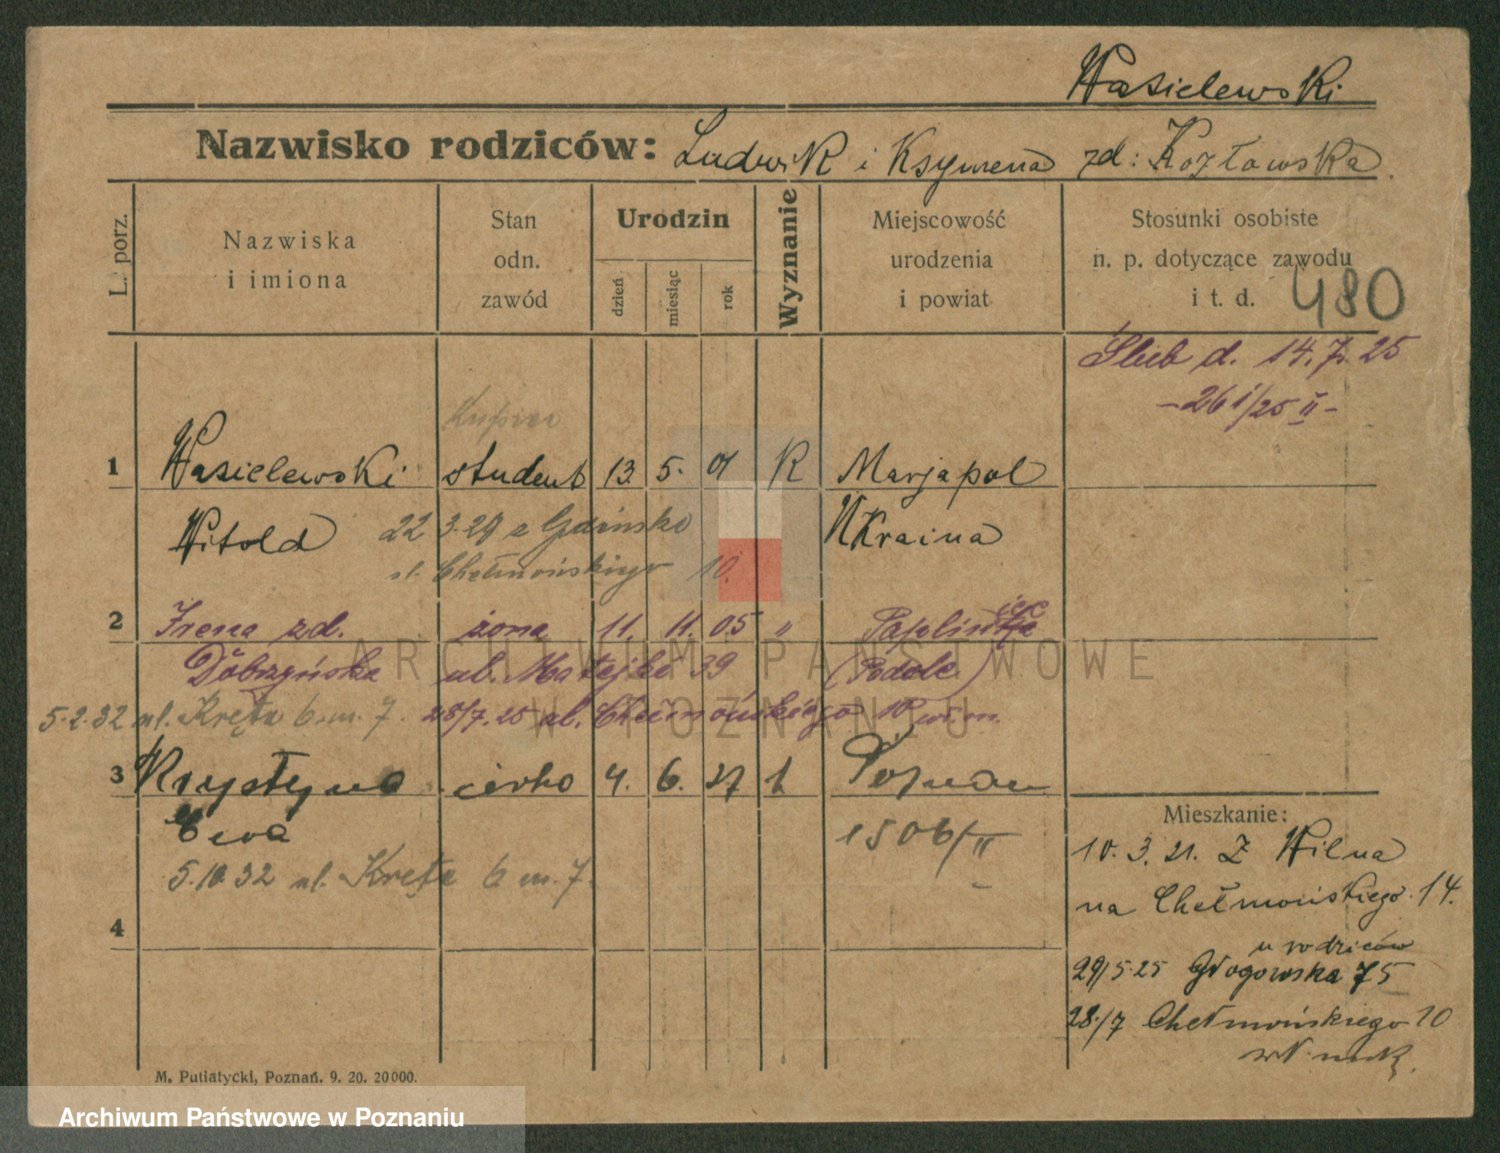 Wasielewski
Nazwisko rodziców: Ludwik i Ksymena zd: Kozłowska.
L. porz.
Nazwiska
i imiona
Stan
odn.
zawód
Urodzin
dzień
miesiąc
rok
Wyznanie
Miejscowość
urodzenia
i powiat
Stosunki osobiste
n. p. dotyczące zawodu
i t. d.
480
Ślub d. 14.7.25
-261/25 II-
Kupiec
1 Wasielewski student 13. 5. 01 R Marjapol
Witold 22 3.29 z Gdańska Ukraina
ul. Chełmońskiego 10.
2 Irena zd. żona 11. 11. 05 "
Dobrzyńska ul. Matejki 39 (Podole)
5.2.32 ul. Kręta 6 m. 7. 28/7.25 ul. Chełmońskiego 10 w m.
3 Krystyna córka 4. 6. 27 Poznań
Ewa 1506/II
5.10.32 ul. Kręta 6 m. 7.
4
Mieszkanie:
10. 3. 21. Z Wilna
na Chełmońskiego 14.
u rodziców
29/5.25 Głogowska 75
28./7 Chełmońskiego 10
M. Putiatycki, Poznań. 9. 20. 20000.
ARCHIWUM PAŃSTWOWE
W POZNANIU
Archiwum Państwowe w Poznaniu